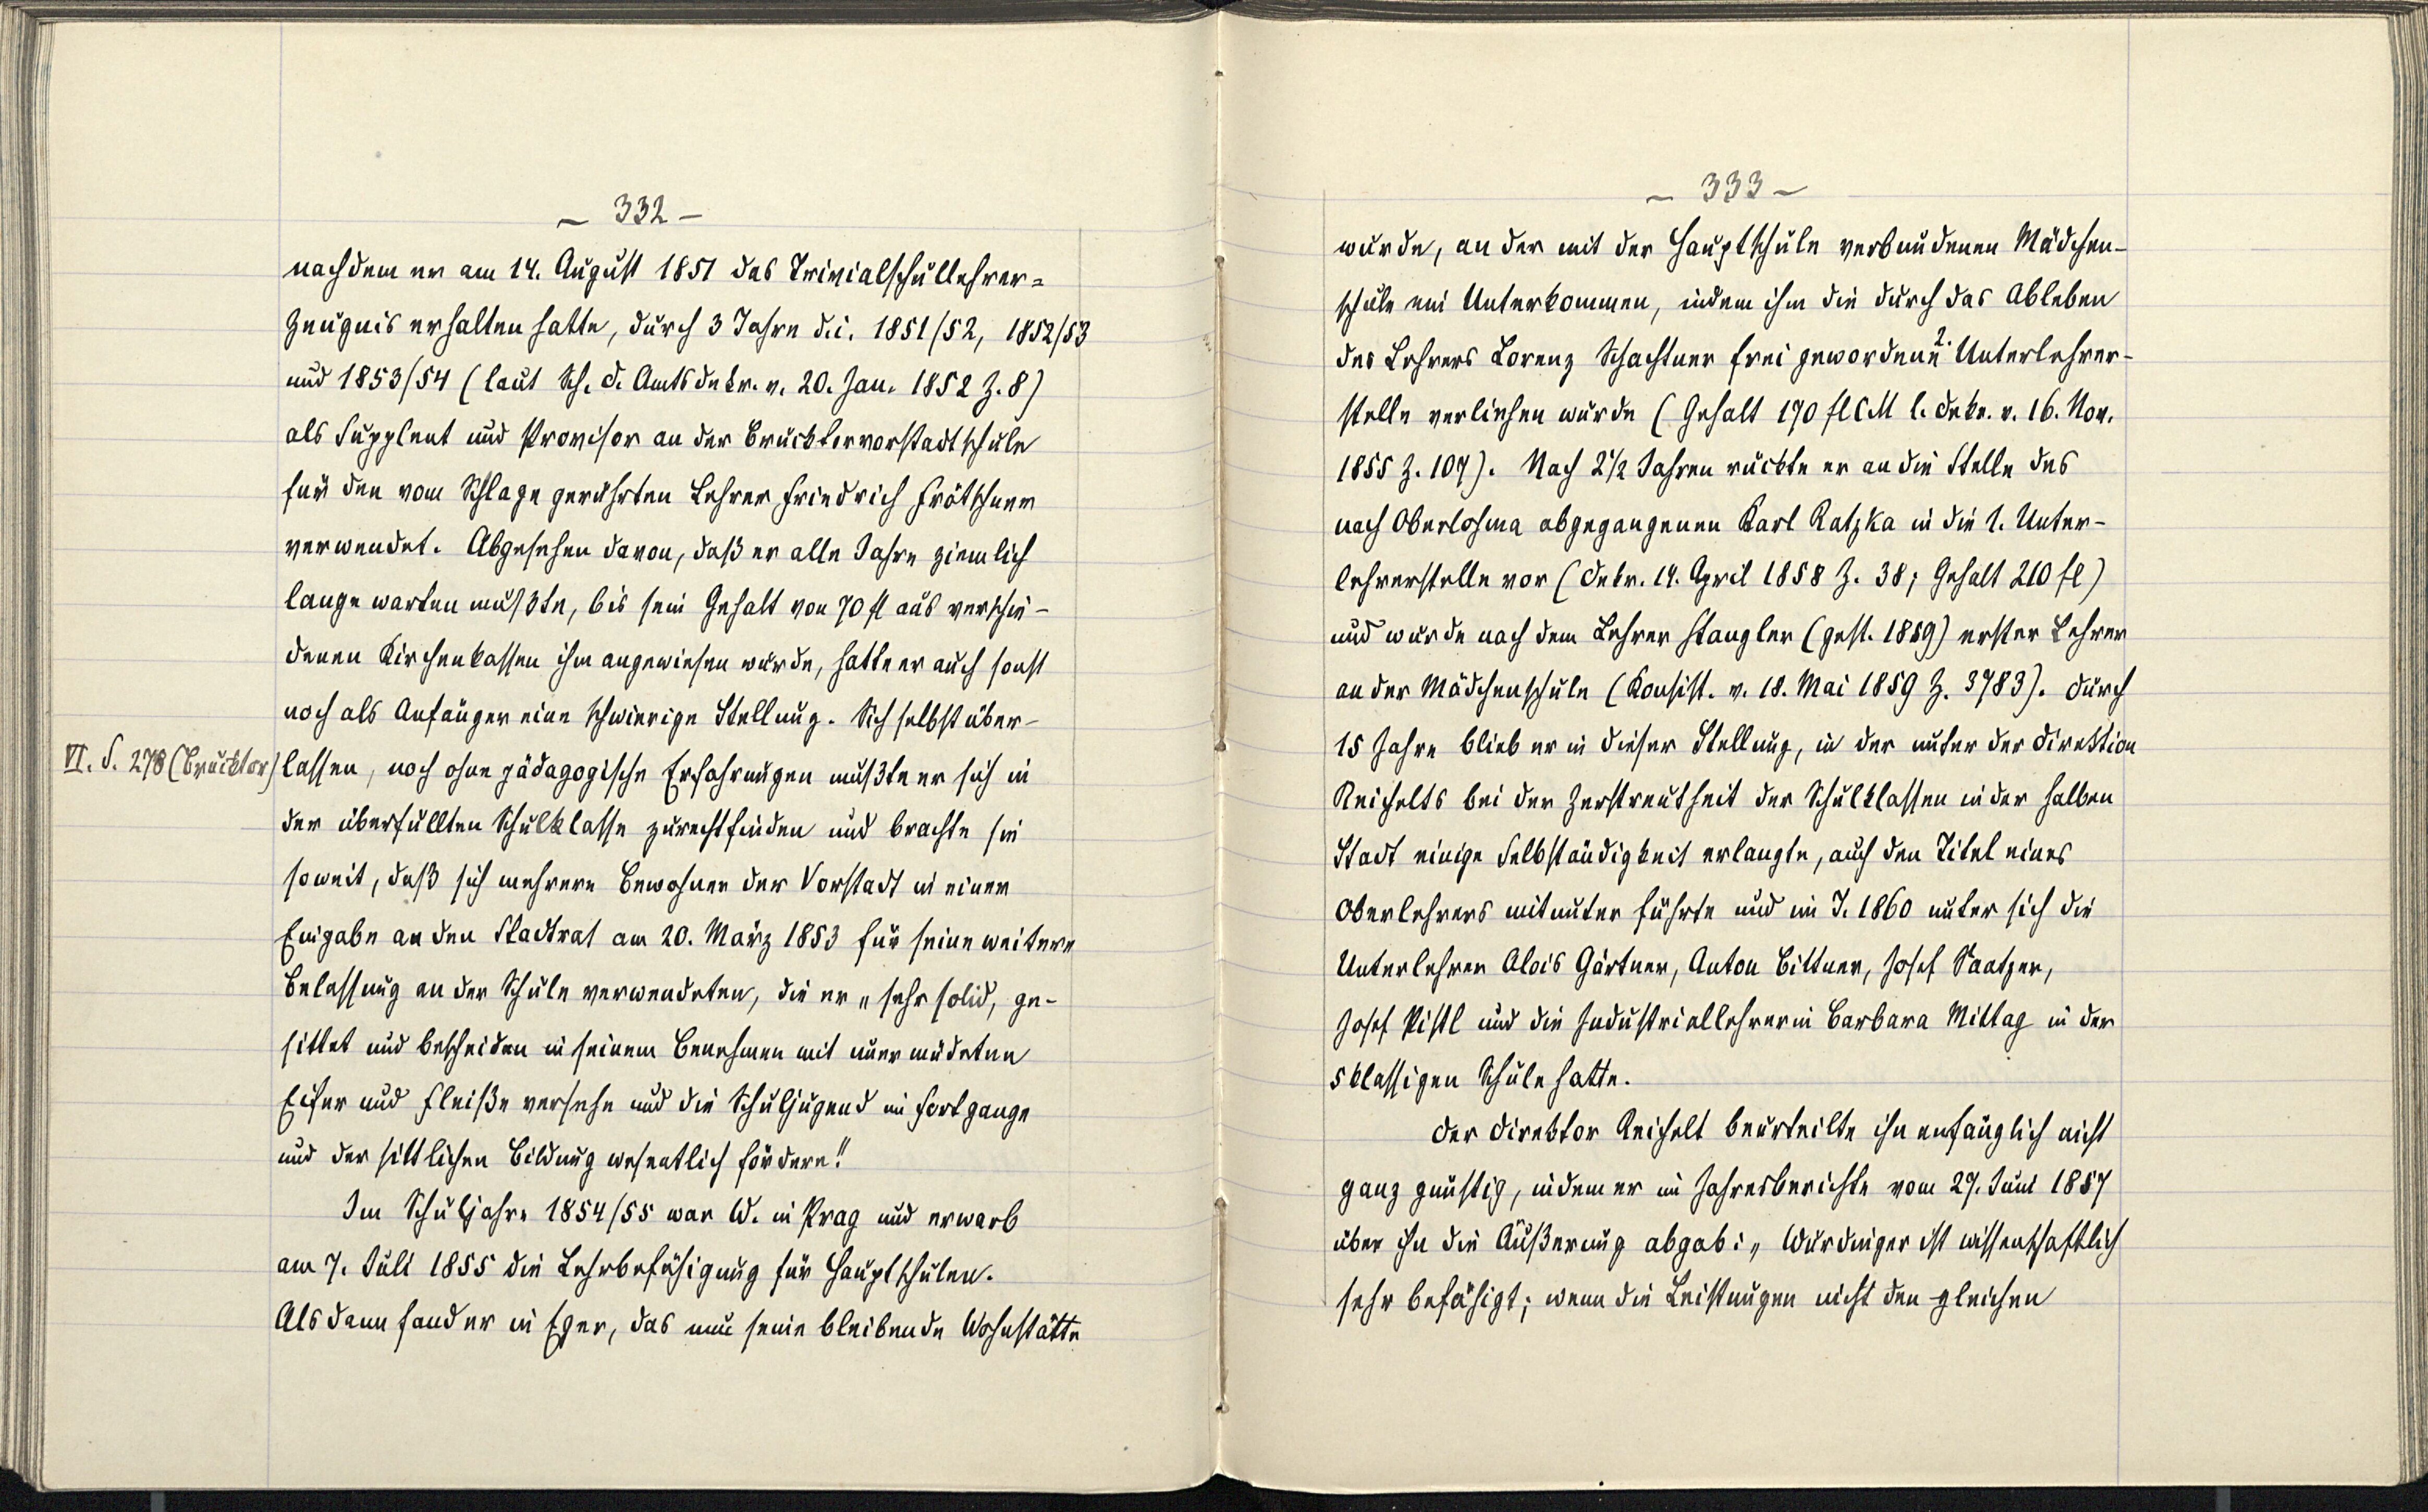 - 332 -
nachdem er am 14. August 1851 das Trivialschullehrer=
zeugnis erhalten hatte, durch 3 Jahre d.i. 1851/52, 1852/53
und 1853/54 (laut Sch. d. Amtsdekr. v. 20. Jan. 1852 Z. 8)
als Supplent und Provisor an der Brucktorvorstadtschule
für den vom Schlage gerührten Lehrer Friedrich Frötschner
verwendet. Abgesehen davon, daß er alle Jahre ziemlich
lange warten mußte, bis sein Gehalt von 70 fl aus verschie-
denen Kirchenkassen ihm angewiesen wurde, hatte er auch sonst
noch als Anfänger eine schwierige Stellung. Sich selbst über-
VI. S. 278 (Brucktor)
lassen, noch ohne pädagogische Erfahrungen mußte er sich in
der überfüllten Schulklasse zurechtfinden und brachte sie
soweit, daß sich mehrere Bewohner der Vorstadt in einer
Eingabe an den Stadtrat am 20. März 1853 für seine weitere
Belassung an der Schule verwendeten, die er „sehr solid, ge-
sittet und bescheiden in seinem Benehmen mit unermüdeten
Eifer und Fleiße versehe und die Schuljugend im Fortgange
und der sittlichen Bildung wesentlich fördere!"
Im Schuljahre 1854/55 war W. in Prag und erwarb
am 7. Juli 1855 die Lehrbefähigung für Hauptschulen.
Alsdann fand er in Eger, das nun seine bleibende Wohnstätte
- 333 -
wurde, an der mit der Hauptschule verbundenen Mädchen-
schule ein Unterkommen, indem ihm die durch das Ableben
des Lehrers Lorenz Schachtner frei gewordene 2. Unterlehrer-
stelle verliehen wurde (Gehalt 170 fl CM l. Dekr. v. 16. Nov.
1855 Z. 107). Nach 2 1/2 Jahren rückte er an die Stelle des
nach Oberlohma abgegangenen Karl Ratzka in die 1. Unter-
lehrerstelle vor (Dekr. 14. April 1858 Z. 38; Gehalt 210 fl)
und wurde nach dem Lehrer Stangler (gest. 1859) erster Lehrer
an der Mädchenschule (Konsist. v. 18. Mai 1859 Z. 3783). Durch
15 Jahre blieb er in dieser Stellung, in der unter der Direktion
Reichelts bei der Zerstreutheit der Schulklassen in der halben
Stadt einige Selbständigkeit erlangte, auch den Titel eines
Oberlehrers mitunter führte und im J. 1860 unter sich die
Unterlehrer Alois Gärtner, Anton Bittner, Josef Saatzer,
Josef Pistl und die Industriallehrerin Barbara Mittag in der
5 klassigen Schule hatte.
Der Direktor Reichelt beurteilte ihn anfänglich nicht
ganz günstig, indem er im Jahresberichte vom 29. Juni 1857
über ihn die Äußerung abgab: „Würdinger ist wissenschaftlich
sehr befähigt; wenn die Leistungen nicht den gleichen